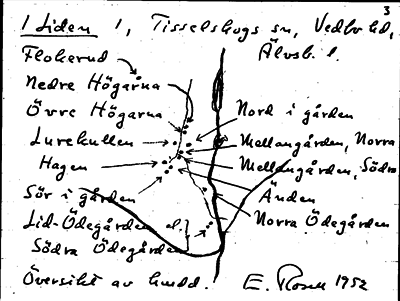 3
1 Liden 1, Tisselskogs sn, Vedbo hd,
Älvsb. l.
Flokerud
Nedre Högarna
Övre Högarna
Lurekullen
Hagen
Sör i gården
Lid-Ödegården
Södra Ödegården
Nord i gården
Mellangården, Norra
Mellangården, Södra
Änden
Norra Ödegården
Översikt av
E. Rosell 1952